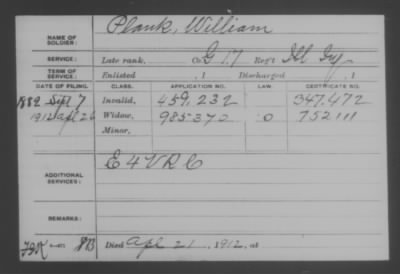 NAME OF SOLDIER: Plank, William
SERVICE: Late rank, Co G 17 Reg't Ill Inf
TERM OF SERVICE: Enlisted , 1 Discharged , 1
DATE OF FILING. CLASS. APPLICATION NO. LAW. CERTIFICATE NO.
1882 Sept 7 Invalid, 459,232 347,472
1912 Apl 26 Widow, 985370 O 752111
Minor,
ADDITIONAL SERVICES: E 4 V R C
REMARKS:
Died Apl 21, 1912, at